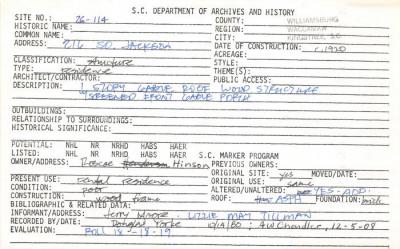 S.C. DEPARTMENT OF ARCHIVES AND HISTORY
SITE NO.: 26-114 COUNTY: WILLIAMSBURG
HISTORIC NAME: REGION: WACCAMAW
COMMON NAME: CITY: KINGSTREE, SC
ADDRESS: 216 SO. JACKSON DATE OF CONSTRUCTION: c.1920
ACREAGE:
CLASSIFICATION: structure STYLE:
TYPE: residence THEME(S):
ARCHITECT/CONTRACTOR: PUBLIC ACCESS:
DESCRIPTION: 1 STORY GABLE ROOF WOOD STRUCTURE
SCREENED FRONT GABLE PORCH
OUTBUILDINGS:
RELATIONSHIP TO SURROUNDINGS:
HISTORICAL SIGNIFICANCE:
POTENTIAL: NHL NR NRHD HABS HAER
LISTED: NHL NR NRHD HABS HAER S.C. MARKER PROGRAM
OWNER/ADDRESS: Roscoe Henderson Hinson PREVIOUS OWNERS:
ORIGINAL SITE: yes MOVED/DATE:
PRESENT USE: rental residence ORIGINAL USE: same
CONDITION: poor ALTERED/UNALTERED: YES-ADD.
CONSTRUCTION: wood frame ROOF: ASPH FOUNDATION: brick
BIBLIOGRAPHIC & RELATED DATA:
INFORMANT/ADDRESS: Jerry Moore LIZZIE MAY TILLMAN
RECORDED BY/DATE: Douglas Yorke 10/14/80; AW Chandler, 12-5-08
EVALUATION: ROLL 18-18-19